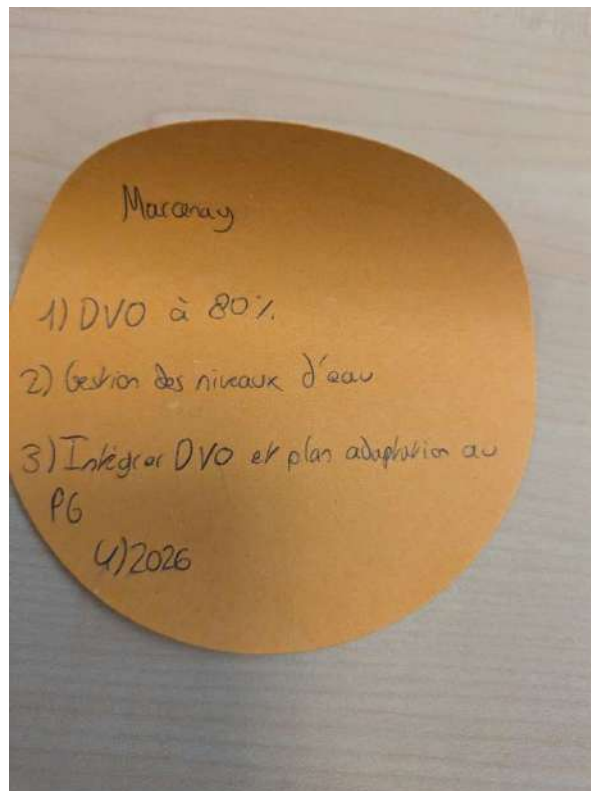 Marcenay
1) DVO à 80%
2) Gestion des niveaux d'eau
3) Intégrer DVO et plan adaptation au
PG
4) 2026